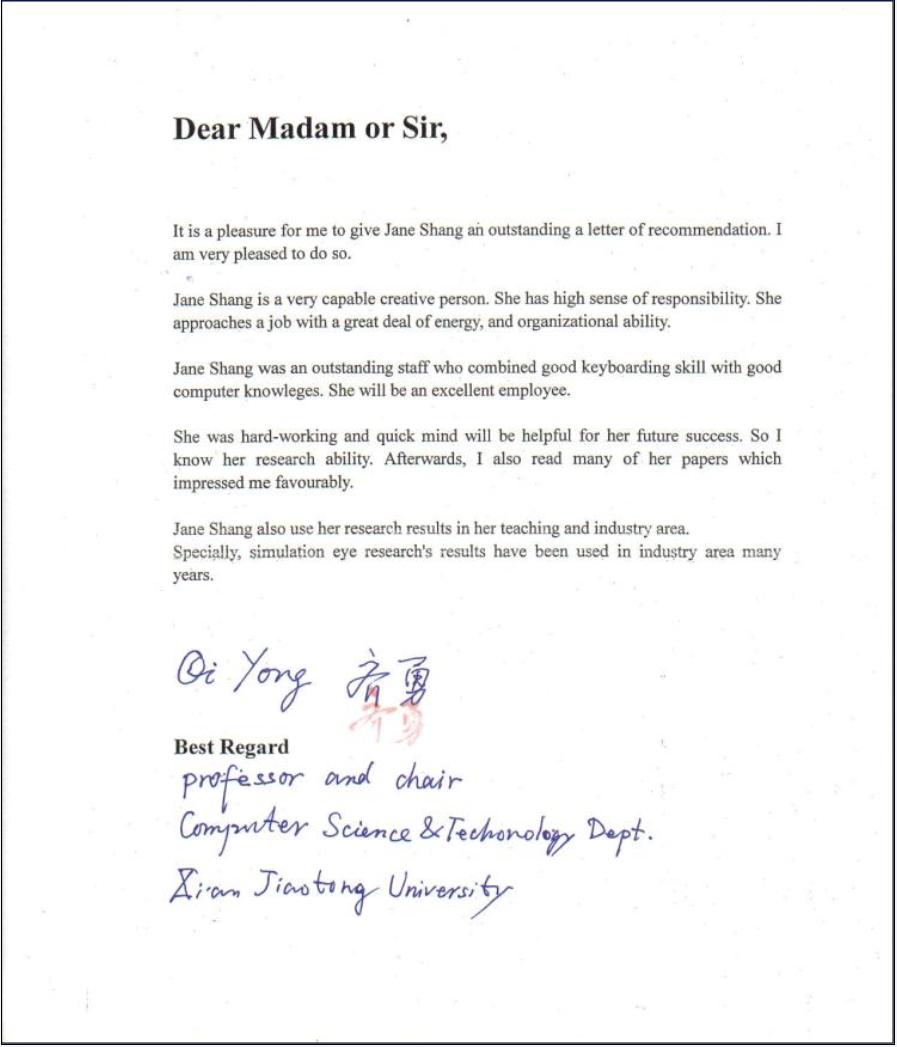 Dear Madam or Sir,
It is a pleasure for me to give Jane Shang an outstanding a letter of recommendation. I
am very pleased to do so.
Jane Shang is a very capable creative person. She has high sense of responsibility. She
approaches a job with a great deal of energy, and organizational ability.
Jane Shang was an outstanding staff who combined good keyboarding skill with good
computer knowleges. She will be an excellent employee.
She was hard-working and quick mind will be helpful for her future success. So I
know her research ability. Afterwards, I also read many of her papers which
impressed me favourably.
Jane Shang also use her research results in her teaching and industry area.
Specially, simulation eye research's results have been used in industry area many
years.
Qi Yong 齐勇
齐勇
Best Regard
professor and chair
Computer Science & Techonology Dept.
Xi'an Jiaotong University